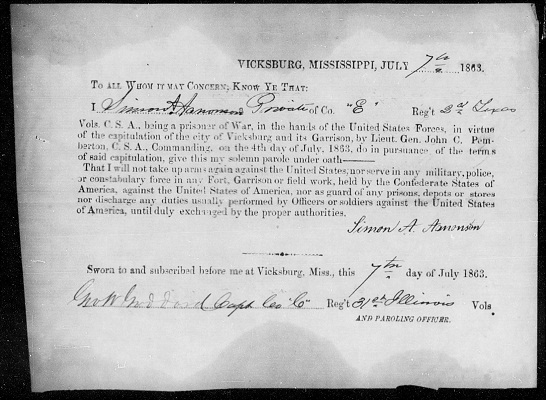 VICKSBURG, MISSISSIPPI, JULY 7th 1863.
TO ALL WHOM IT MAY CONCERN; KNOW YE THAT:
I Simon A. Private of Co. "E" Reg't 2d Texas
Vols. C. S. A., being a prisoner of War, in the hands of the United States Forces, in virtue
of the capitulation of the city of Vicksburg and its Garrison, by Lieut. Gen. John C. Pem-
berton, C. S. A., Commanding, on the 4th day of July, 1863, do in pursuance of the terms
of said capitulation, give this my solemn parole under oath——
That I will not take up arms again against the United States, nor serve in any military, police,
or constabulary force in any Fort, Garrison or field work, held by the Confederate States of
America, against the United States of America, nor as guard of any prisons, depots or stores
nor discharge any duties usually performed by Officers or soldiers against the United States
of America, until duly exchanged by the proper authorities.
Simon A.
Sworn to and subscribed before me at Vicksburg, Miss., this 7th day of July 1863.
Geo W Capt Co "C" Reg't Illinois Vols
AND PAROLING OFFICER.